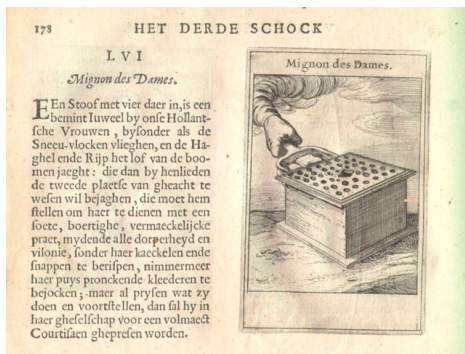 178 HET DERDE SCHOCK
LVI
Mignon des Dames.
EEn Stoof met vier daer in, is een
bemint Iuweel by onse Hollant-
sche Vrouwen, bysonder als de
Sneeu-vlocken vlieghen, en de Ha-
ghel ende Rijp het lof van de boo-
men jaeght: die dan by henlieden
de tweede plaetse van gheacht te
wesen wil bejaghen, die moet hem
stellen om haer te dienen met een
soete, boertighe, vermaeckelijcke
praet, mydende alle dorperheyd en
vilonie, sonder haer kaeckelen ende
snappen te berispen, nimmermeer
haer puys pronckende kleederen te
bejocken; maer al prysen wat zy
doen en voortstellen, dan sal hy in
haer gheselschap voor een volmaect
Courtisaen ghepresen worden.
Mignon des Dames.